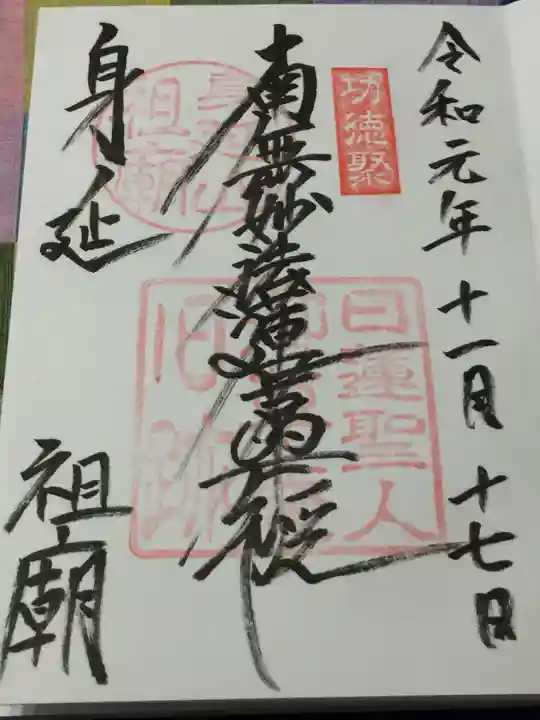 令和元年十一月十七日
功徳聚
南無妙法蓮華経
日蓮聖人
旧跡
身延
祖廟